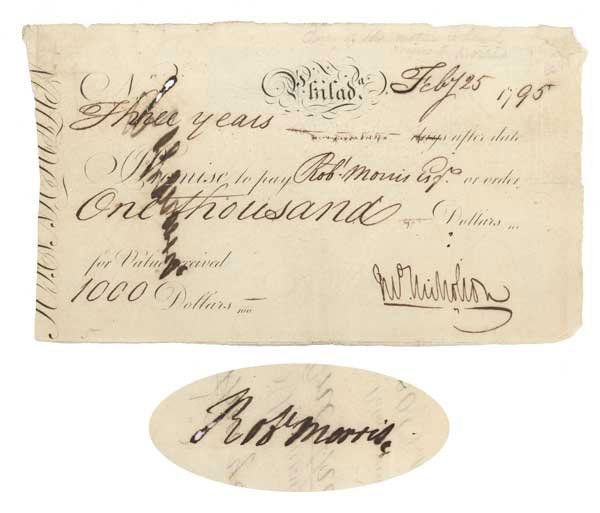 No.
Philada. Feby 25 1795
Three years after date
I Promise to pay Robt Morris Esqr. or order
One thousand Dollars
for Value received
1000 Dollars
Jno Nicholson
Robt Morris